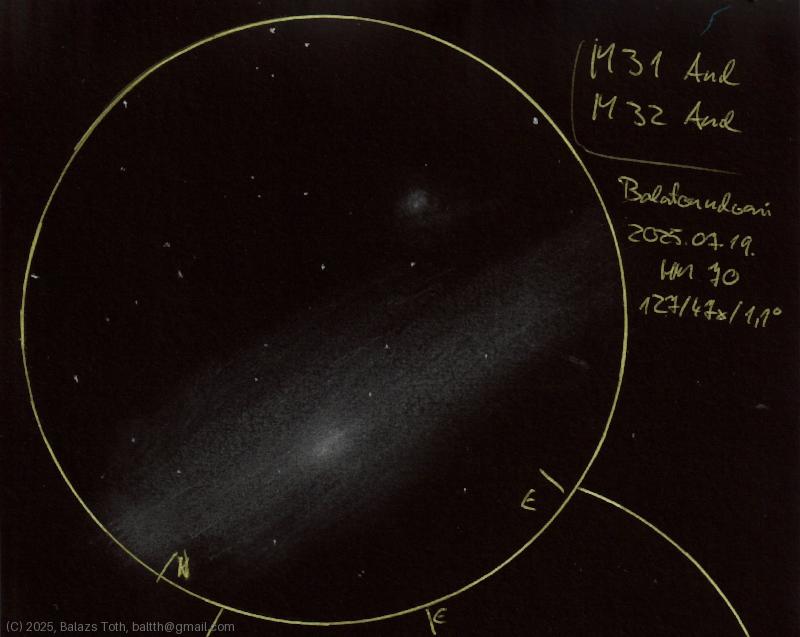 M 31 And
M 32 And
2025.07.19.
HM 70
127/47x/1,1°
E
N
E
(C) 2025, Balazs Toth, baltth@gmail.com